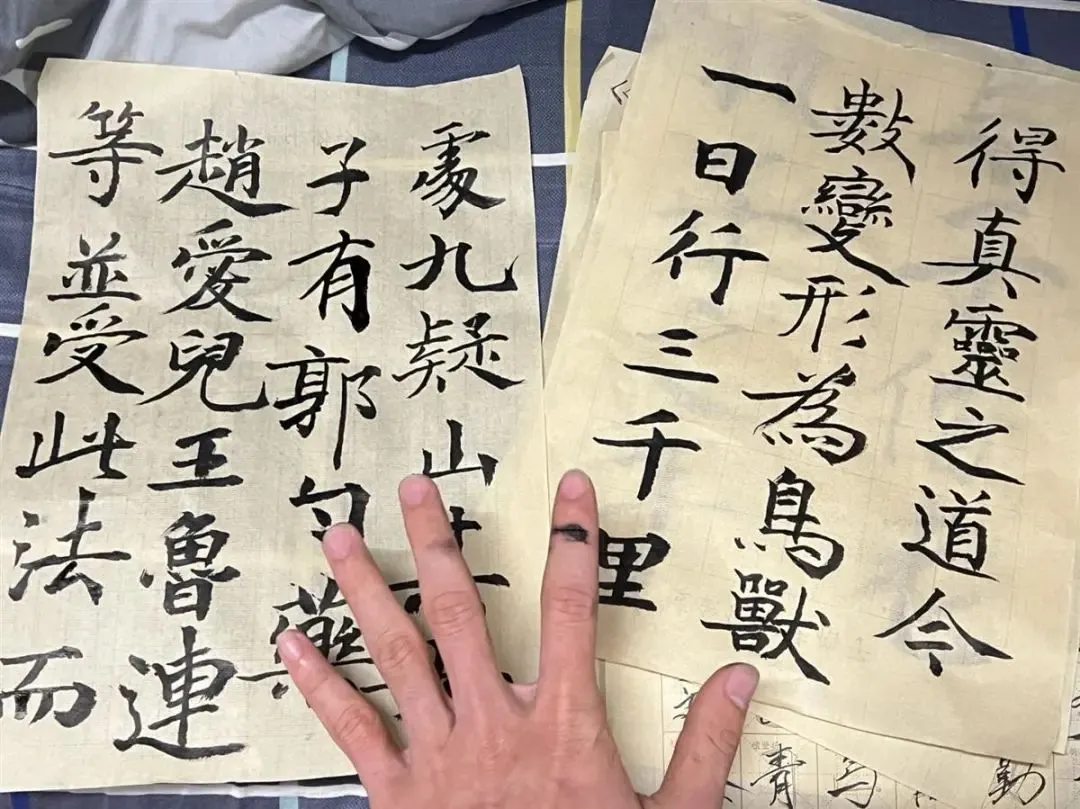 處九疑山
子有郭勺藥
趙愛兒王魯連
等並受此法而
得真靈之道今
數變形為鳥獸
一日行三千里
勤
青